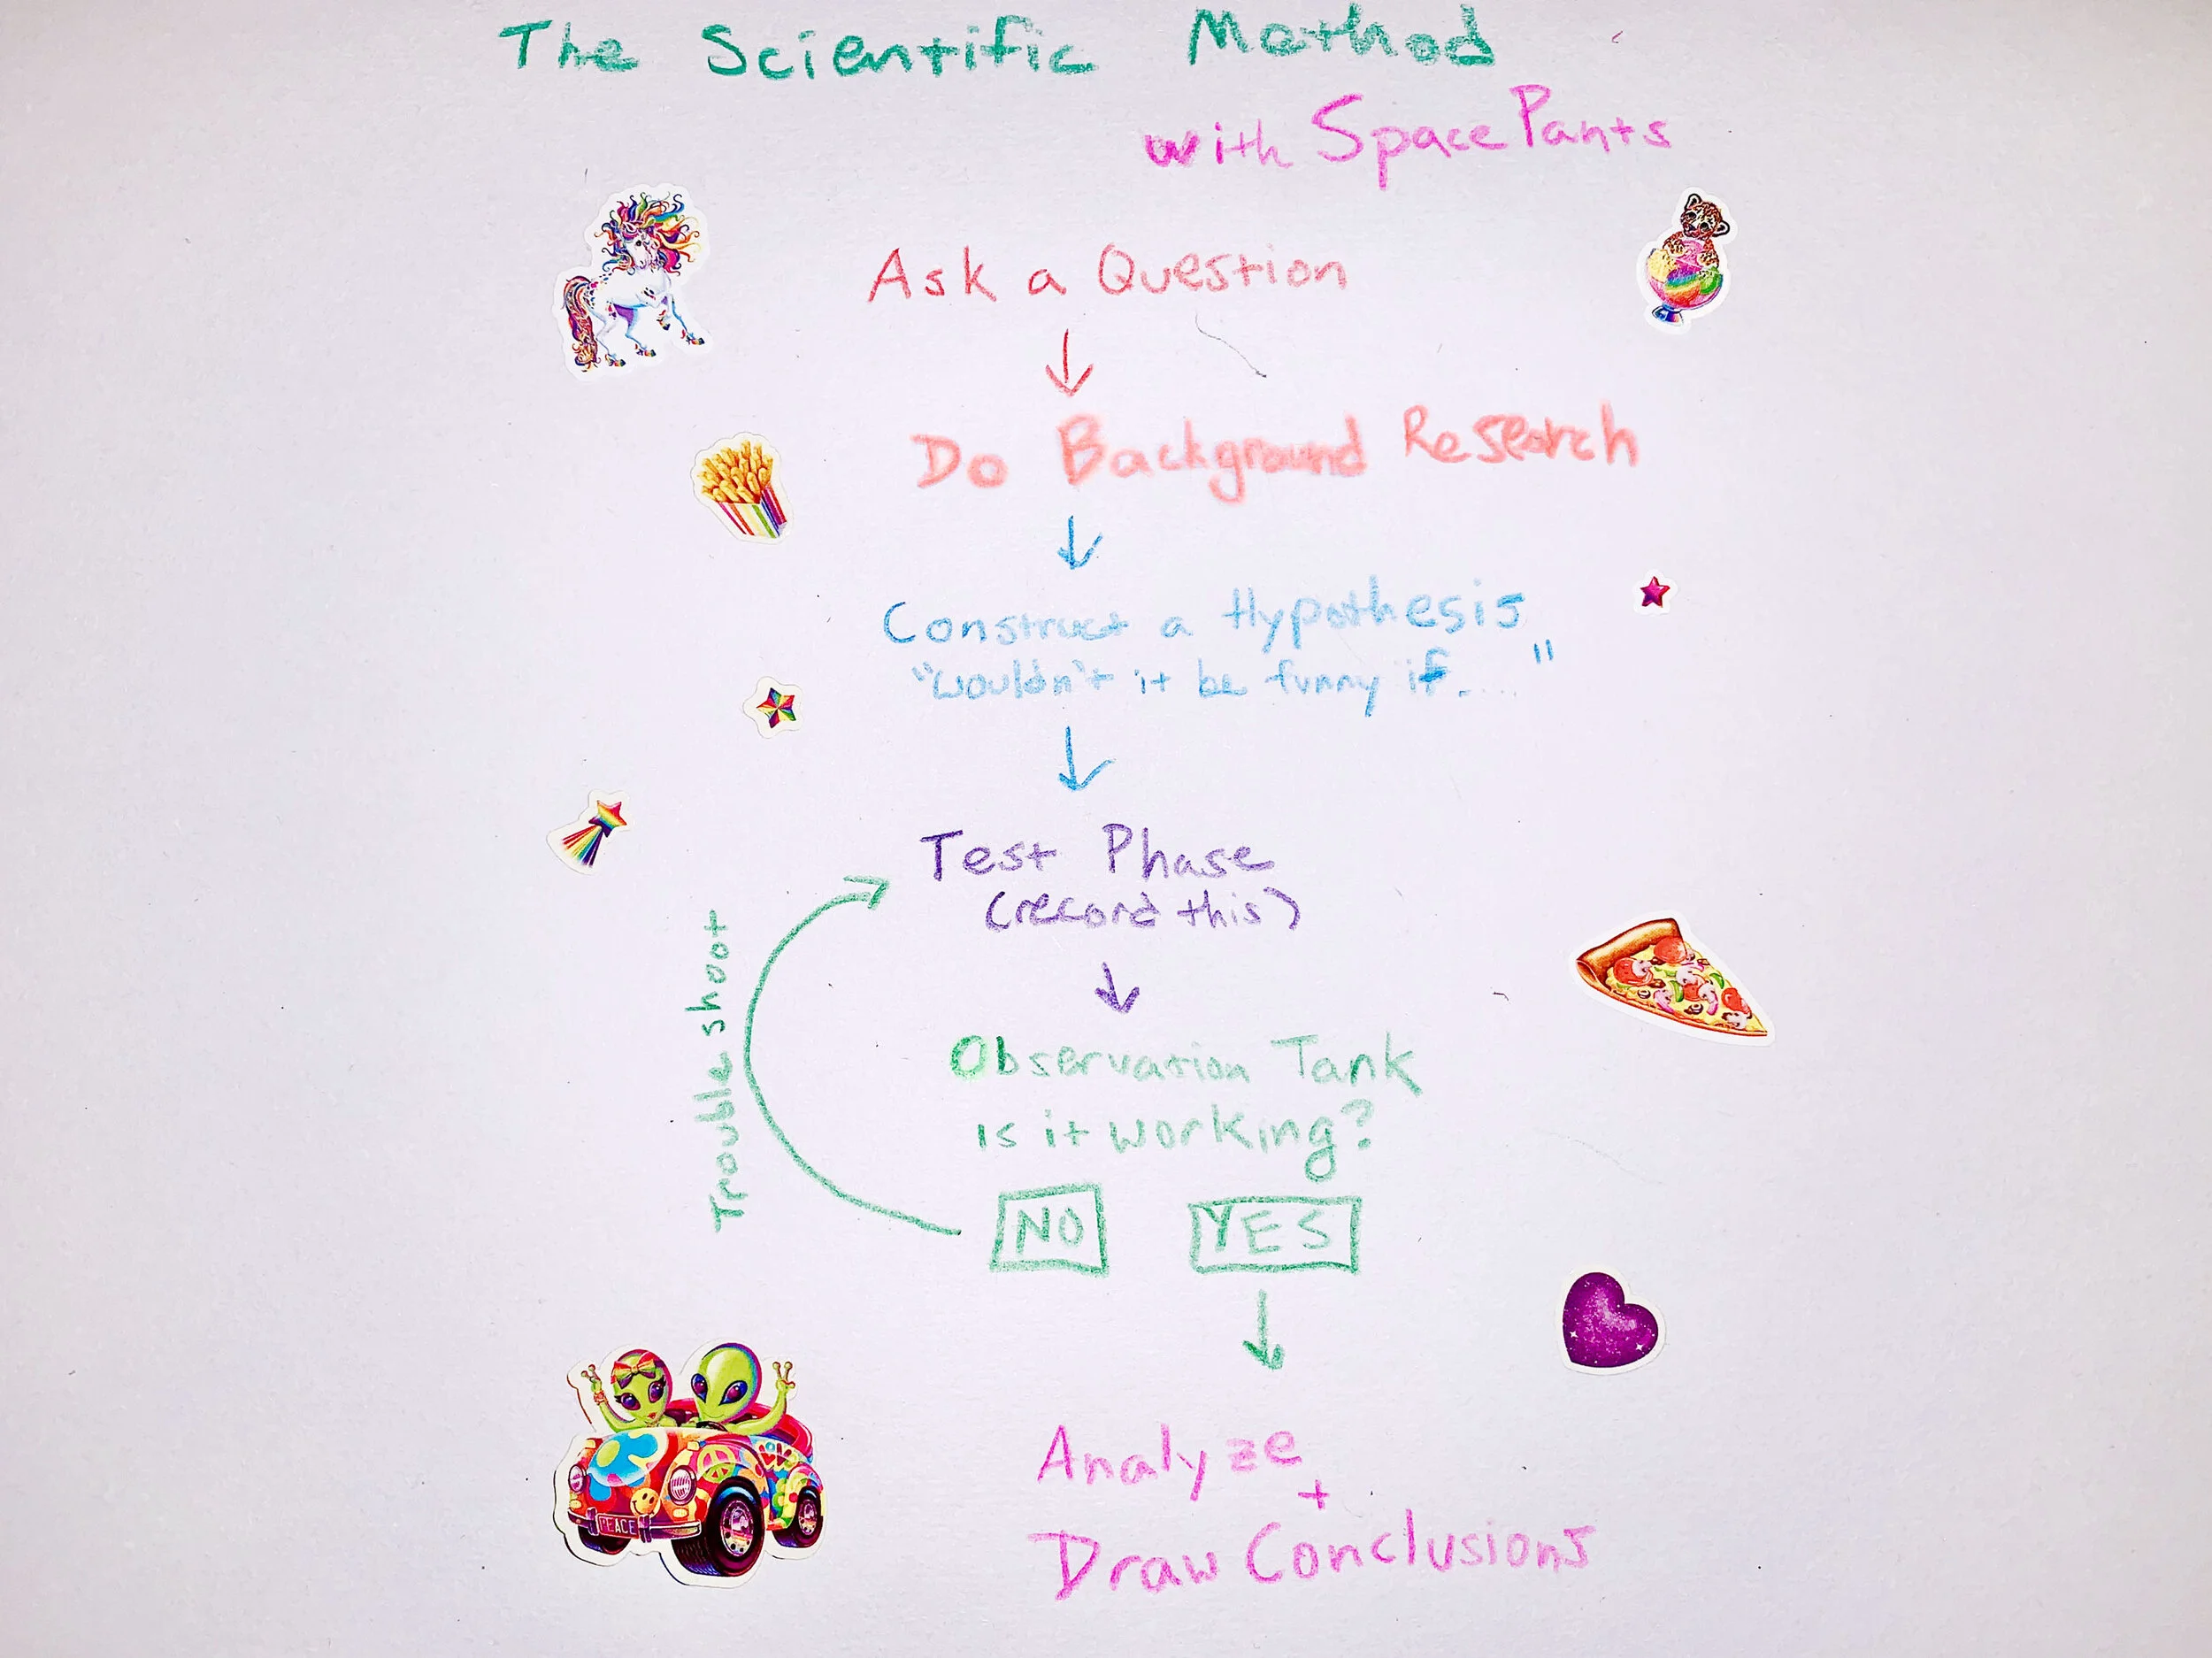 The Scientific Method
with Space Pants
Ask a Question
Do Background Research
Construct a Hypothesis
"wouldn't it be funny if....."
Test Phase
(record this)
Observation Tank
is it working?
NO YES
Trouble shoot
Analyze
+
Draw Conclusions
PEACE